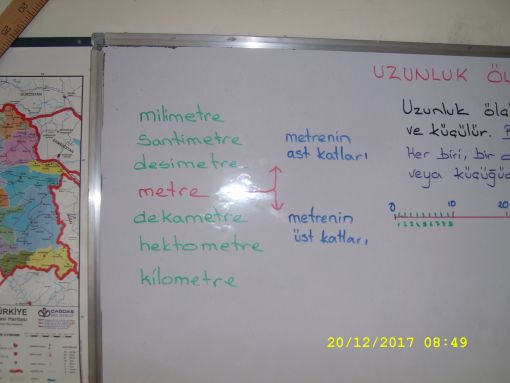 UZUNLUK ÖL
milimetre
santimetre
desimetre
metre
dekametre
hektometre
kilometre
metrenin
ast katları
metrenin
üst katları
Uzunluk
ve küçülür.
Her biri, bir
veya
0 10 20
1 2 3 4 5 6 7 8 9
GÜRCİSTAN
ÜRKİYE
ÇAĞDAŞ
20/12/2017 08:49